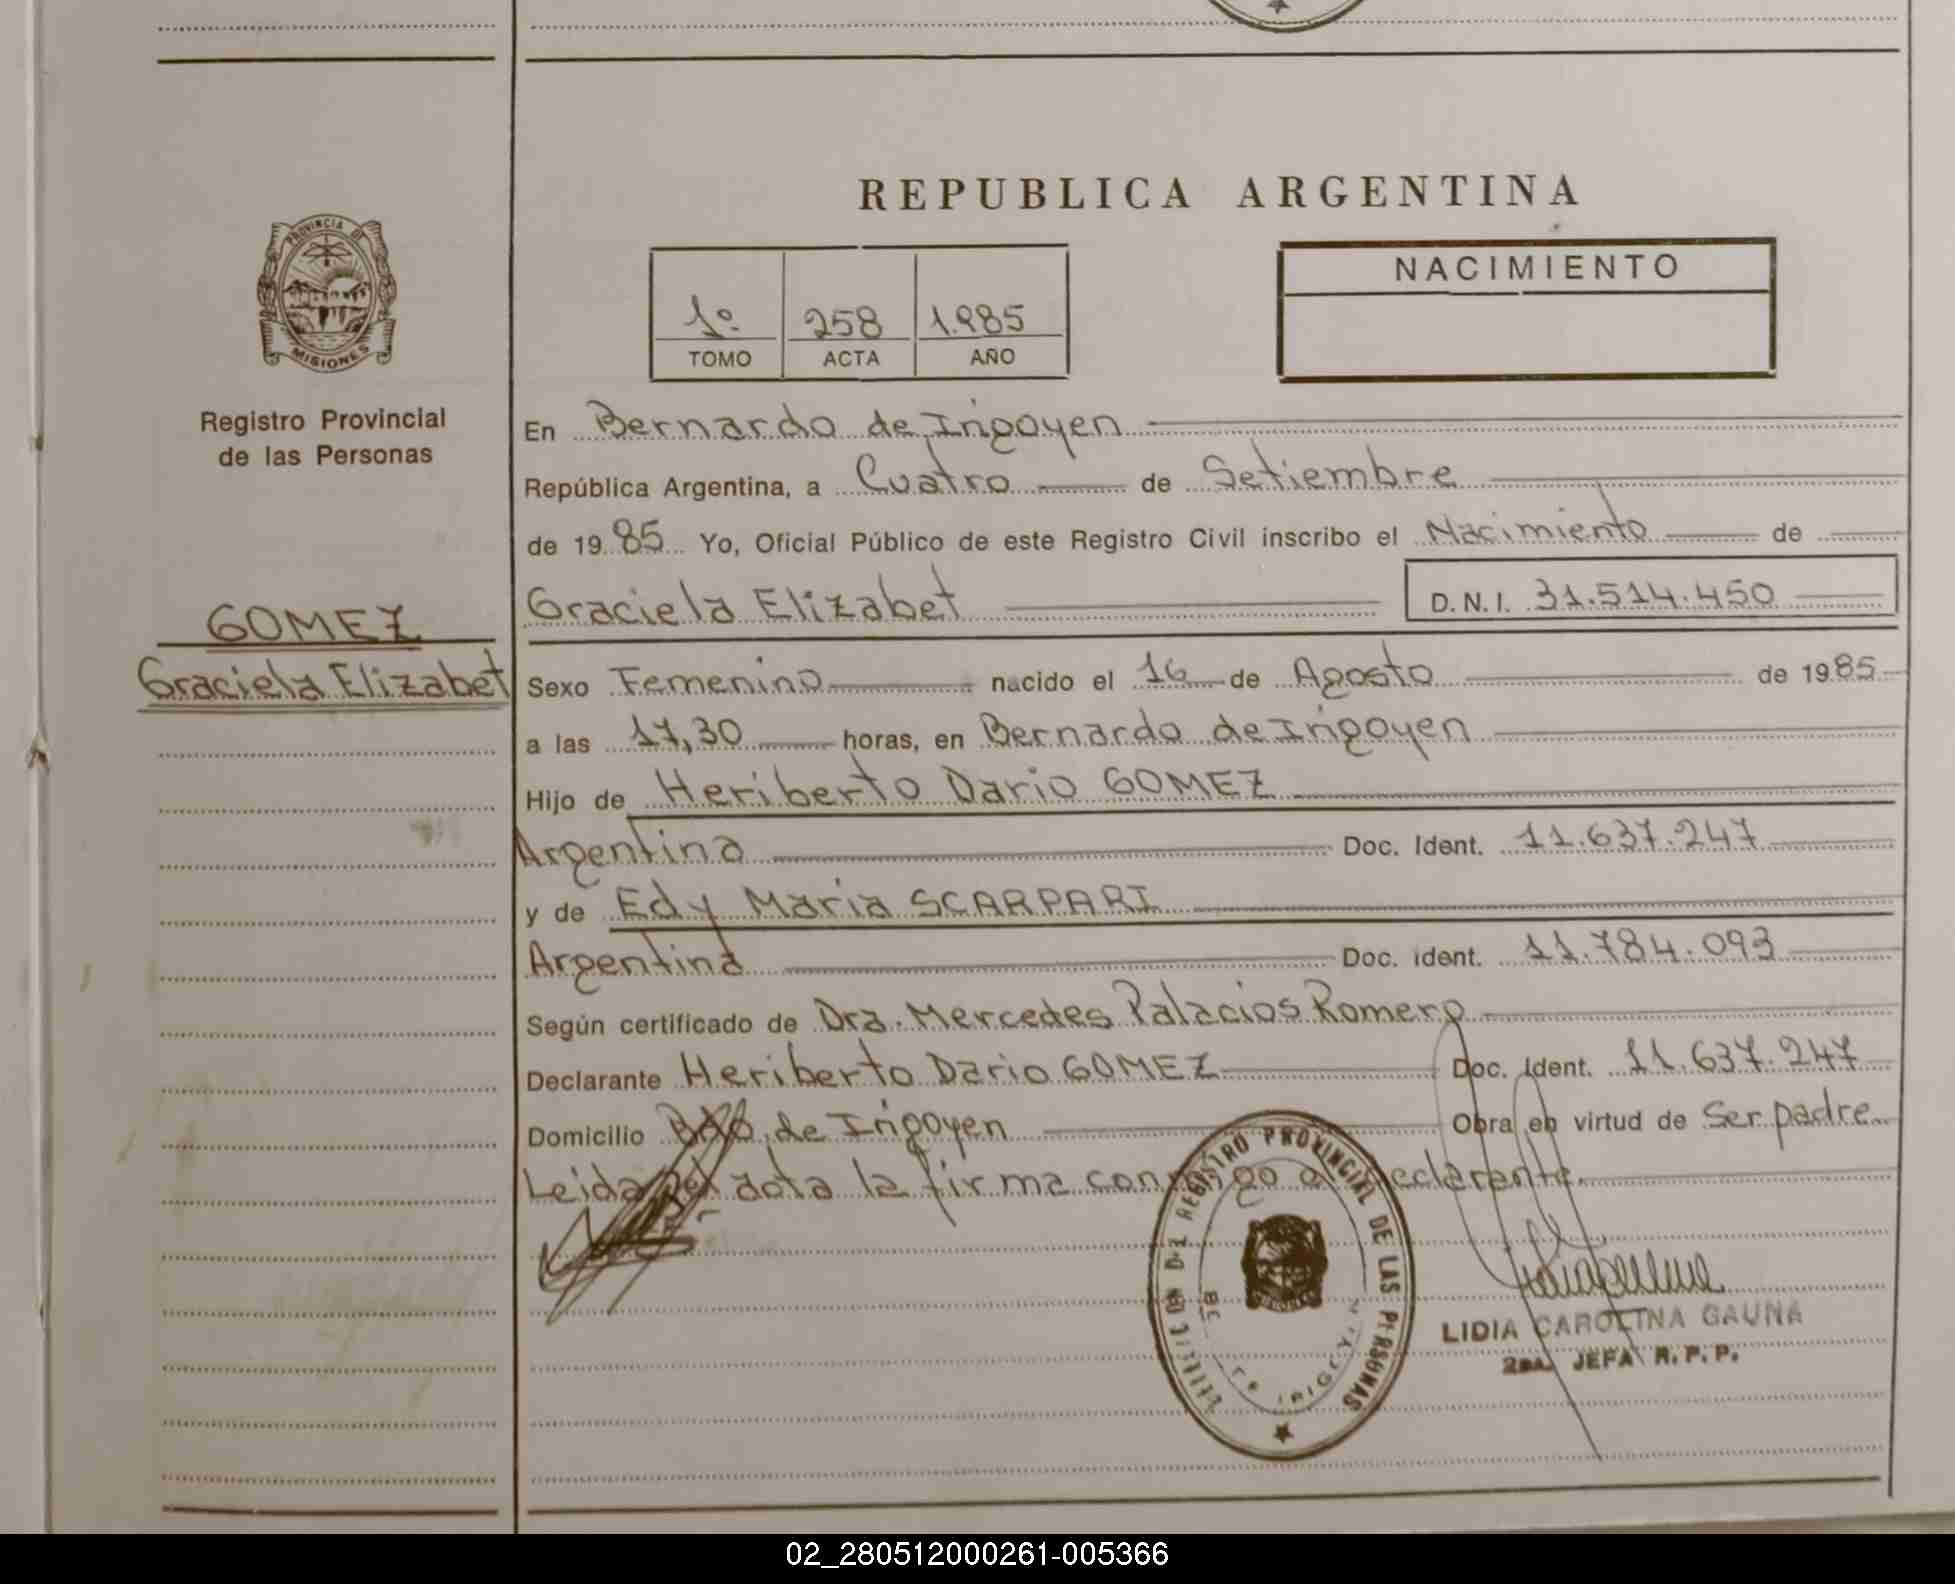 REPUBLICA ARGENTINA
PROVINCIA DE
MISIONES
Registro Provincial
de las Personas
GOMEZ
Graciela Elizabet
1º 258 1.985
TOMO ACTA AÑO
NACIMIENTO
En Bernardo de Irigoyen
República Argentina, a Cuatro de Setiembre
de 1985 Yo, Oficial Público de este Registro Civil inscribo el Nacimiento de
Graciela Elizabet D.N.I. 31.514.450
Sexo Femenino nacido el 16 de Agosto de 1985
a las 17,30 horas, en Bernardo de Irigoyen
Hijo de Heriberto Dario GOMEZ
Argentina Doc. Ident. 11.637.247
y de Edy Maria SCARPARI
Argentina Doc. ident. 11.784.093
Según certificado de Dra. Mercedes Palacios Romero
Declarante Heriberto Dario GOMEZ Doc. Ident. 11.637.247
Domicilio Bdo de Irigoyen Obra en virtud de Ser padre
Leida el acta la firma conmigo el declarante.
REGISTRO PROVINCIAL DE LAS PERSONAS
LIDIA CAROLINA GAUNA
2da. JEFA R.P.P.
02_280512000261-005366